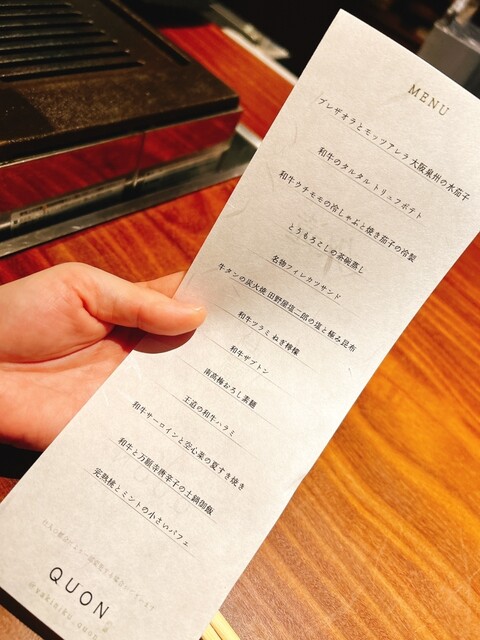 MENU
ブレザオラとモッツアレラ 大阪泉州の水茄子
和牛のタルタルトリュフポテト
和牛ウチモモの冷しゃぶと焼き茄子の冷製
とうもろこしの茶碗蒸し
名物フィレカツサンド
牛タンの炭火焼 田野屋塩二郎の塩と極み昆布
和牛ツラミ ねぎ檸檬
和牛ザブトン
南高梅おろし素麺
王道の和牛ハラミ
和牛サーロインと空心菜の夏すき焼き
和牛と万願寺唐辛子の土鍋御飯
完熟桃とミントの小さいパフェ
QUON